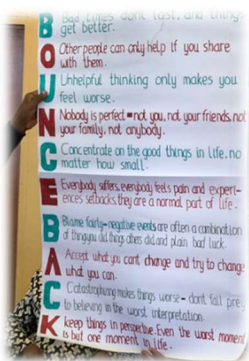 B Bad times don't last, and things
get better.
O Other people can only help if you share
with them.
U Unhelpful thinking only makes you
feel worse.
N Nobody is perfect – not you, not your friends, not
your family, not anybody.
C Concentrate on the good things in life, no
matter how small.
E Everybody suffers, everybody feels pain and experi-
ences setbacks they are a normal part of life.
B Blame fairly – negative events are often a combination
of things you did, things others did and plain bad luck.
A Accept what you cant change and try to change
what you can.
C Catastrophizing makes things worse – dont fall prey
to believing in the worst interpretation.
K keep things in perspective. Even the worst moment
is but one moment in life.